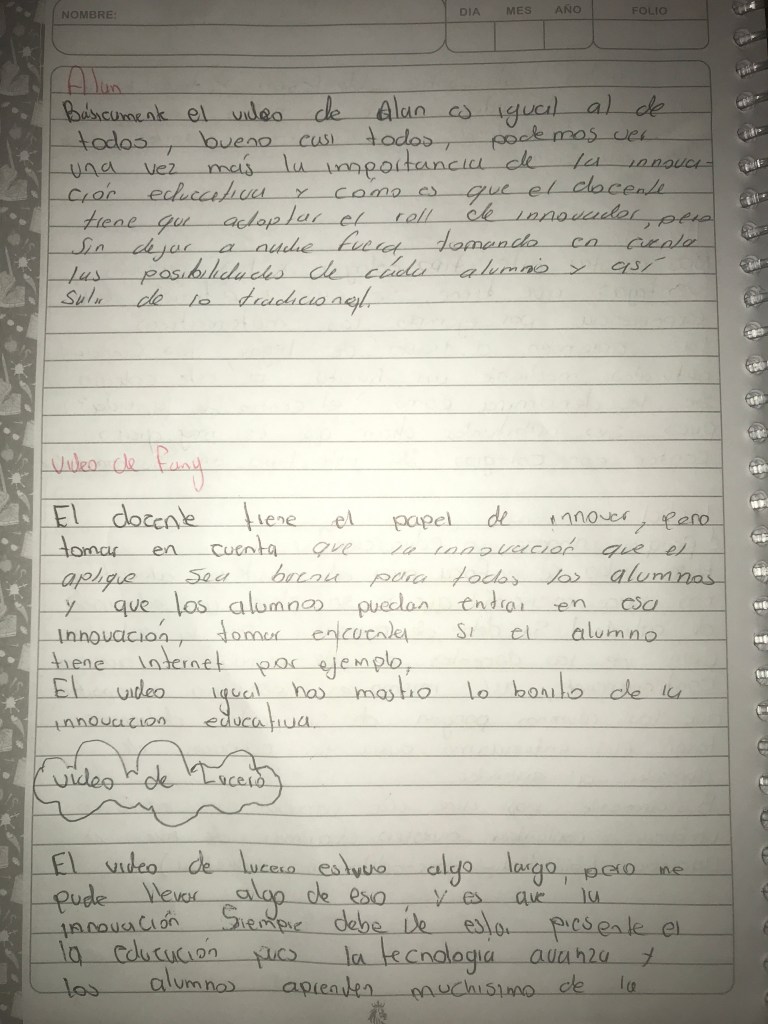 NOMBRE:
DIA MES AÑO FOLIO
Alan
Básicamente el video de Alan es igual al de
todos, bueno casi todos, podemos ver
una vez más la importancia de la innova-
ción educativa y como es que el docente
tiene que adoptar el roll de innovador, pero
sin dejar a nadie fuera tomando en cuenta
las posibilidades de cada alumno y así
salir de lo tradicional.
Video de Fany
El docente tiene el papel de innovar, pero
tomar en cuenta que la innovación que el
aplique sea buena para todos los alumnos
y que los alumnos puedan entrar en esa
innovación, tomar encuenta si el alumno
tiene internet por ejemplo,
El video igual nos mostro lo bonito de la
innovacion educativa.
video de Lucero
El video de lucero estuvo algo largo, pero me
pude llevar algo de eso, y es que la
innovación siempre debe de estar presente el
la educación pues la tecnologia avanza y
los alumnos aprenden muchisimo de la